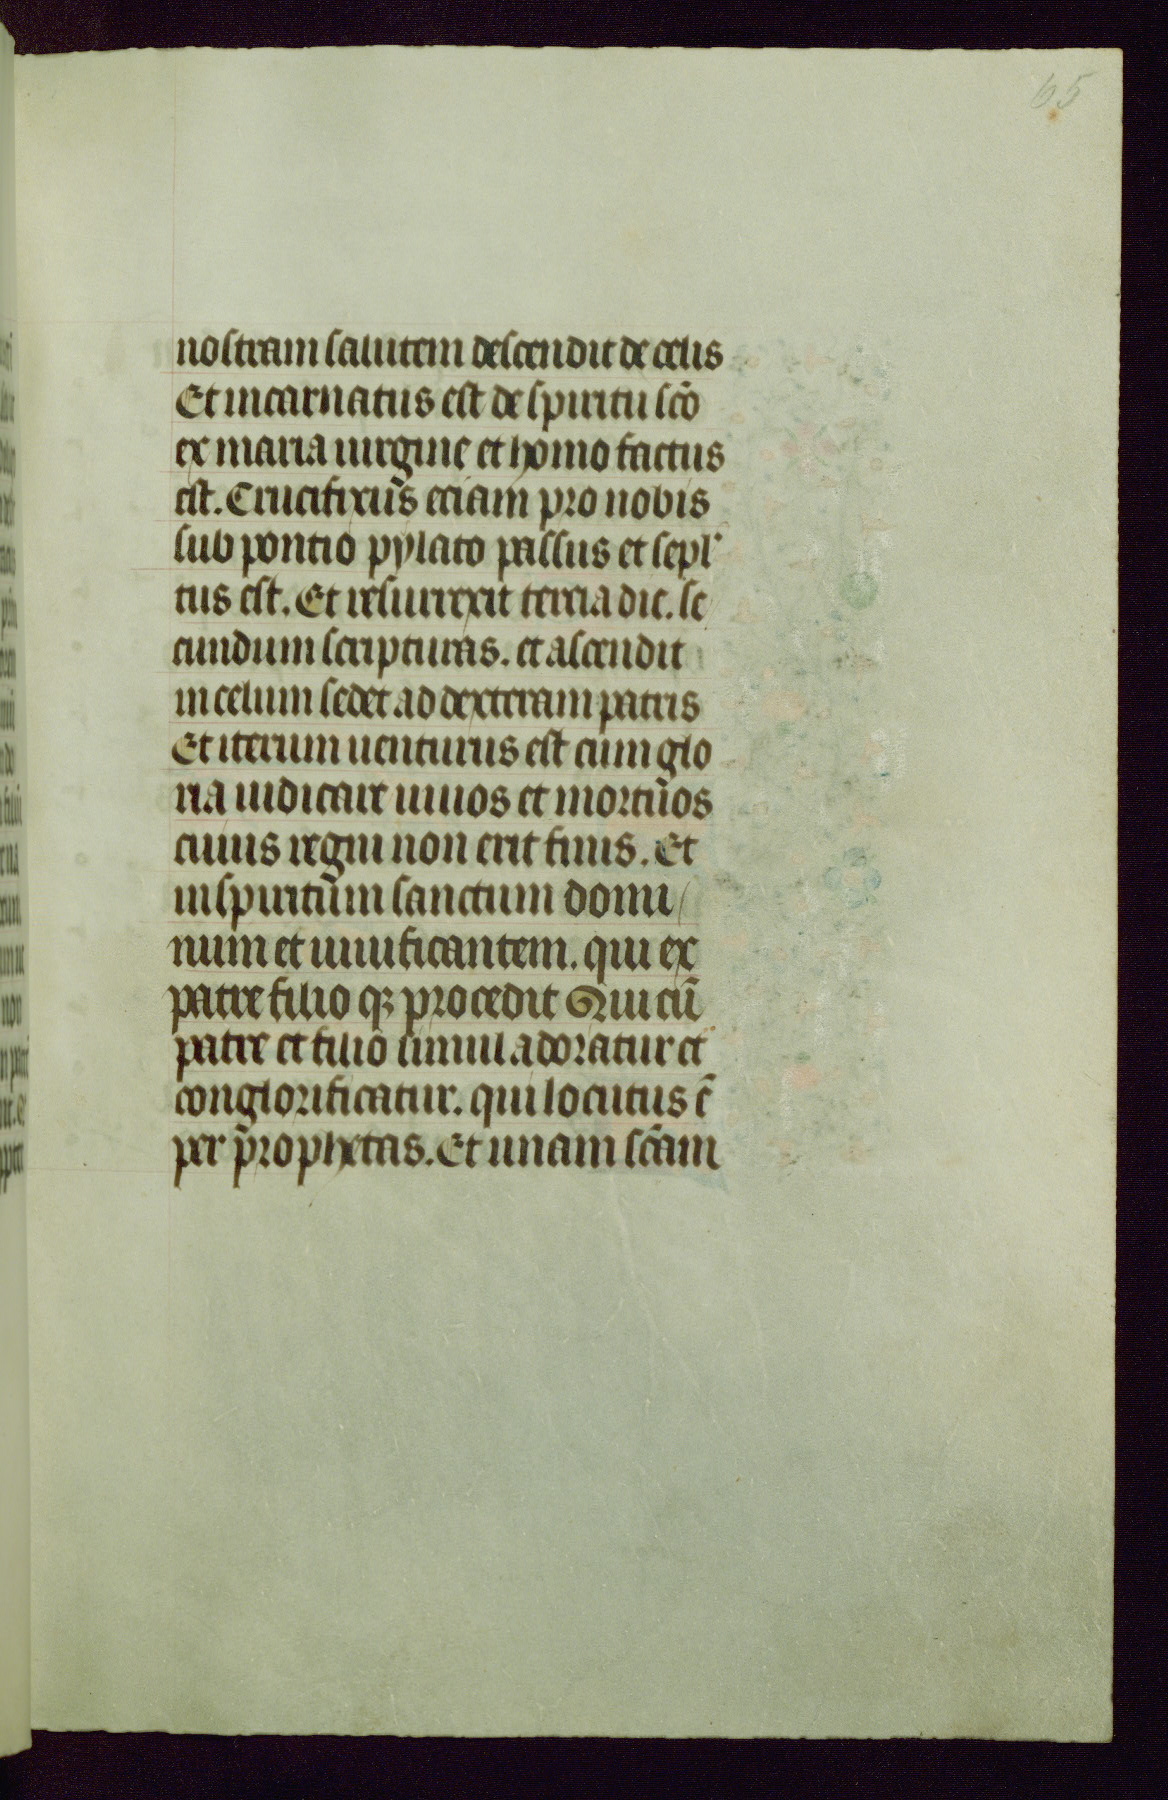 65
nostram salutem descendit de celis
Et incarnatus est de spiritu sco̅
ex maria uirgine et homo factus
est. Crucifixus eciam pro nobis
sub pontio pylato passus et sepl'
tus est. Et resurrexit tercia die. se
cundum scripturas. et ascendit
in celum sedet ad dexteram patris
Et iterum uenturus est cum glo
ria iudicare uiuos et mortuos
cuius regni non erit finis. Et
in spiritum sanctum domi
num et uiuificantem. qui ex
patre filio qȝ procedit Qui cu̅
patre et filio simul adoratur et
conglorificatur. qui locutus e̅
per prophetas. Et unam sca̅m